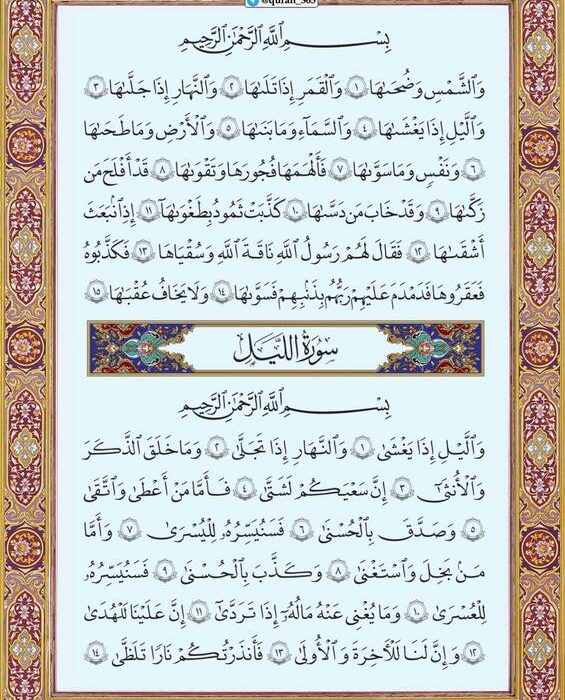 @quran_365
بِسْمِ ٱللَّهِ ٱلرَّحْمَٰنِ ٱلرَّحِيمِ
وَٱلشَّمْسِ وَضُحَىٰهَا ١ وَٱلْقَمَرِ إِذَا تَلَىٰهَا ٢ وَٱلنَّهَارِ إِذَا جَلَّىٰهَا ٣
وَٱلَّيْلِ إِذَا يَغْشَىٰهَا ٤ وَٱلسَّمَآءِ وَمَا بَنَىٰهَا ٥ وَٱلْأَرْضِ وَمَا طَحَىٰهَا
٦ وَنَفْسٍ وَمَا سَوَّىٰهَا ٧ فَأَلْهَمَهَا فُجُورَهَا وَتَقْوَىٰهَا ٨ قَدْ أَفْلَحَ مَن
زَكَّىٰهَا ٩ وَقَدْ خَابَ مَن دَسَّىٰهَا ١٠ كَذَّبَتْ ثَمُودُ بِطَغْوَىٰهَآ ١١ إِذِ ٱنۢبَعَثَ
أَشْقَىٰهَا ١٢ فَقَالَ لَهُمْ رَسُولُ ٱللَّهِ نَاقَةَ ٱللَّهِ وَسُقْيَاهَا ١٣ فَكَذَّبُوهُ
فَعَقَرُوهَا فَدَمْدَمَ عَلَيْهِمْ رَبُّهُم بِذَنۢبِهِمْ فَسَوَّىٰهَا ١٤ وَلَا يَخَافُ عُقْبَىٰهَا ١٥
سُورَةُ اللَّيْلِ
بِسْمِ ٱللَّهِ ٱلرَّحْمَٰنِ ٱلرَّحِيمِ
وَٱلَّيْلِ إِذَا يَغْشَىٰ ١ وَٱلنَّهَارِ إِذَا تَجَلَّىٰ ٢ وَمَا خَلَقَ ٱلذَّكَرَ
وَٱلْأُنثَىٰٓ ٣ إِنَّ سَعْيَكُمْ لَشَتَّىٰ ٤ فَأَمَّا مَنْ أَعْطَىٰ وَٱتَّقَىٰ
٥ وَصَدَّقَ بِٱلْحُسْنَىٰ ٦ فَسَنُيَسِّرُهُۥ لِلْيُسْرَىٰ ٧ وَأَمَّا
مَنۢ بَخِلَ وَٱسْتَغْنَىٰ ٨ وَكَذَّبَ بِٱلْحُسْنَىٰ ٩ فَسَنُيَسِّرُهُۥ
لِلْعُسْرَىٰ ١٠ وَمَا يُغْنِى عَنْهُ مَالُهُۥٓ إِذَا تَرَدَّىٰٓ ١١ إِنَّ عَلَيْنَا لَلْهُدَىٰ
١٢ وَإِنَّ لَنَا لَلْءَاخِرَةَ وَٱلْأُولَىٰ ١٣ فَأَنذَرْتُكُمْ نَارًا تَلَظَّىٰ ١٤